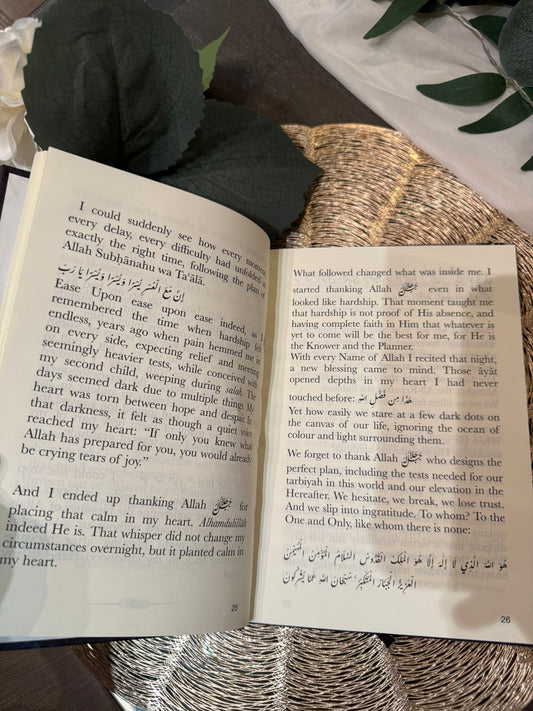 I could suddenly see how every moment,
every delay, every difficulty had unfolded at
exactly the right time, following the plan of
Allah Subḥānahu wa Taʿālā.
إِنَّ مَعَ الْعُسْرِ يُسْرًا وَيُسْرًا وَيُسْرًا يَا رَبّ
Ease Upon ease upon ease indeed, as I
remembered the time when hardship felt
endless, years ago when pain hemmed me in
on every side, expecting relief and meeting
seemingly heavier tests, while conceived with
my second child, weeping during salah. The
days seemed dark due to multiple things My
heart was torn between hope and despair. In
that darkness, it felt as though a quiet voice
reached my heart: “If only you knew what
Allah has prepared for you, you would already
be crying tears of joy.”
And I ended up thanking Allah ﷻ for
placing that calm in my heart. Alhamdulillāh
indeed He is. That whisper did not change my
circumstances overnight, but it planted calm in
my heart.
26
What followed changed what was inside me. I
started thanking Allah ﷻ even in what
looked like hardship. That moment taught me
that hardship is not proof of His absence, and
having complete faith in Him that whatever is
yet to come will be the best for me, for He is
the Knower and the Planner.
With every Name of Allah I recited that night,
a new blessing came to mind. Those āyāt
opened depths in my heart I had never
touched before: هَذَا مِن فَضْلِ الله
Yet how easily we stare at a few dark dots on
the canvas of our life, ignoring the ocean of
colour and light surrounding them.
We forget to thank Allah ﷻ who designs the
perfect plan, including the tests needed for our
tarbiyah in this world and our elevation in the
Hereafter. We hesitate, we break, we lose trust.
And we slip into ingratitude. To whom? To the
One and Only, like whom there is none:
هُوَ اللهُ الَّذِي لَا إِلَهَ إِلَّا هُوَ الْمَلِكُ الْقُدُّوسُ السَّلَامُ الْمُؤْمِنُ الْمُهَيْمِنُ
الْعَزِيزُ الْجَبَّارُ الْمُتَكَبِّرُ ۚ سُبْحَانَ اللهِ عَمَّا يُشْرِكُونَ
26